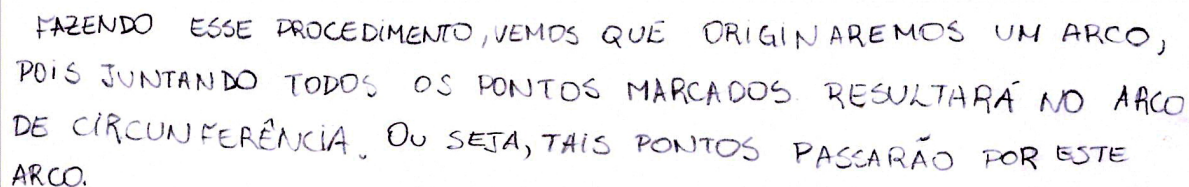 FAZENDO ESSE PROCEDIMENTO, VEMOS QUE ORIGINAREMOS UM ARCO,
POIS JUNTANDO TODOS OS PONTOS MARCADOS RESULTARÁ NO ARCO
DE CIRCUNFERÊNCIA. OU SEJA, TAIS PONTOS PASSARÃO POR ESTE
ARCO.